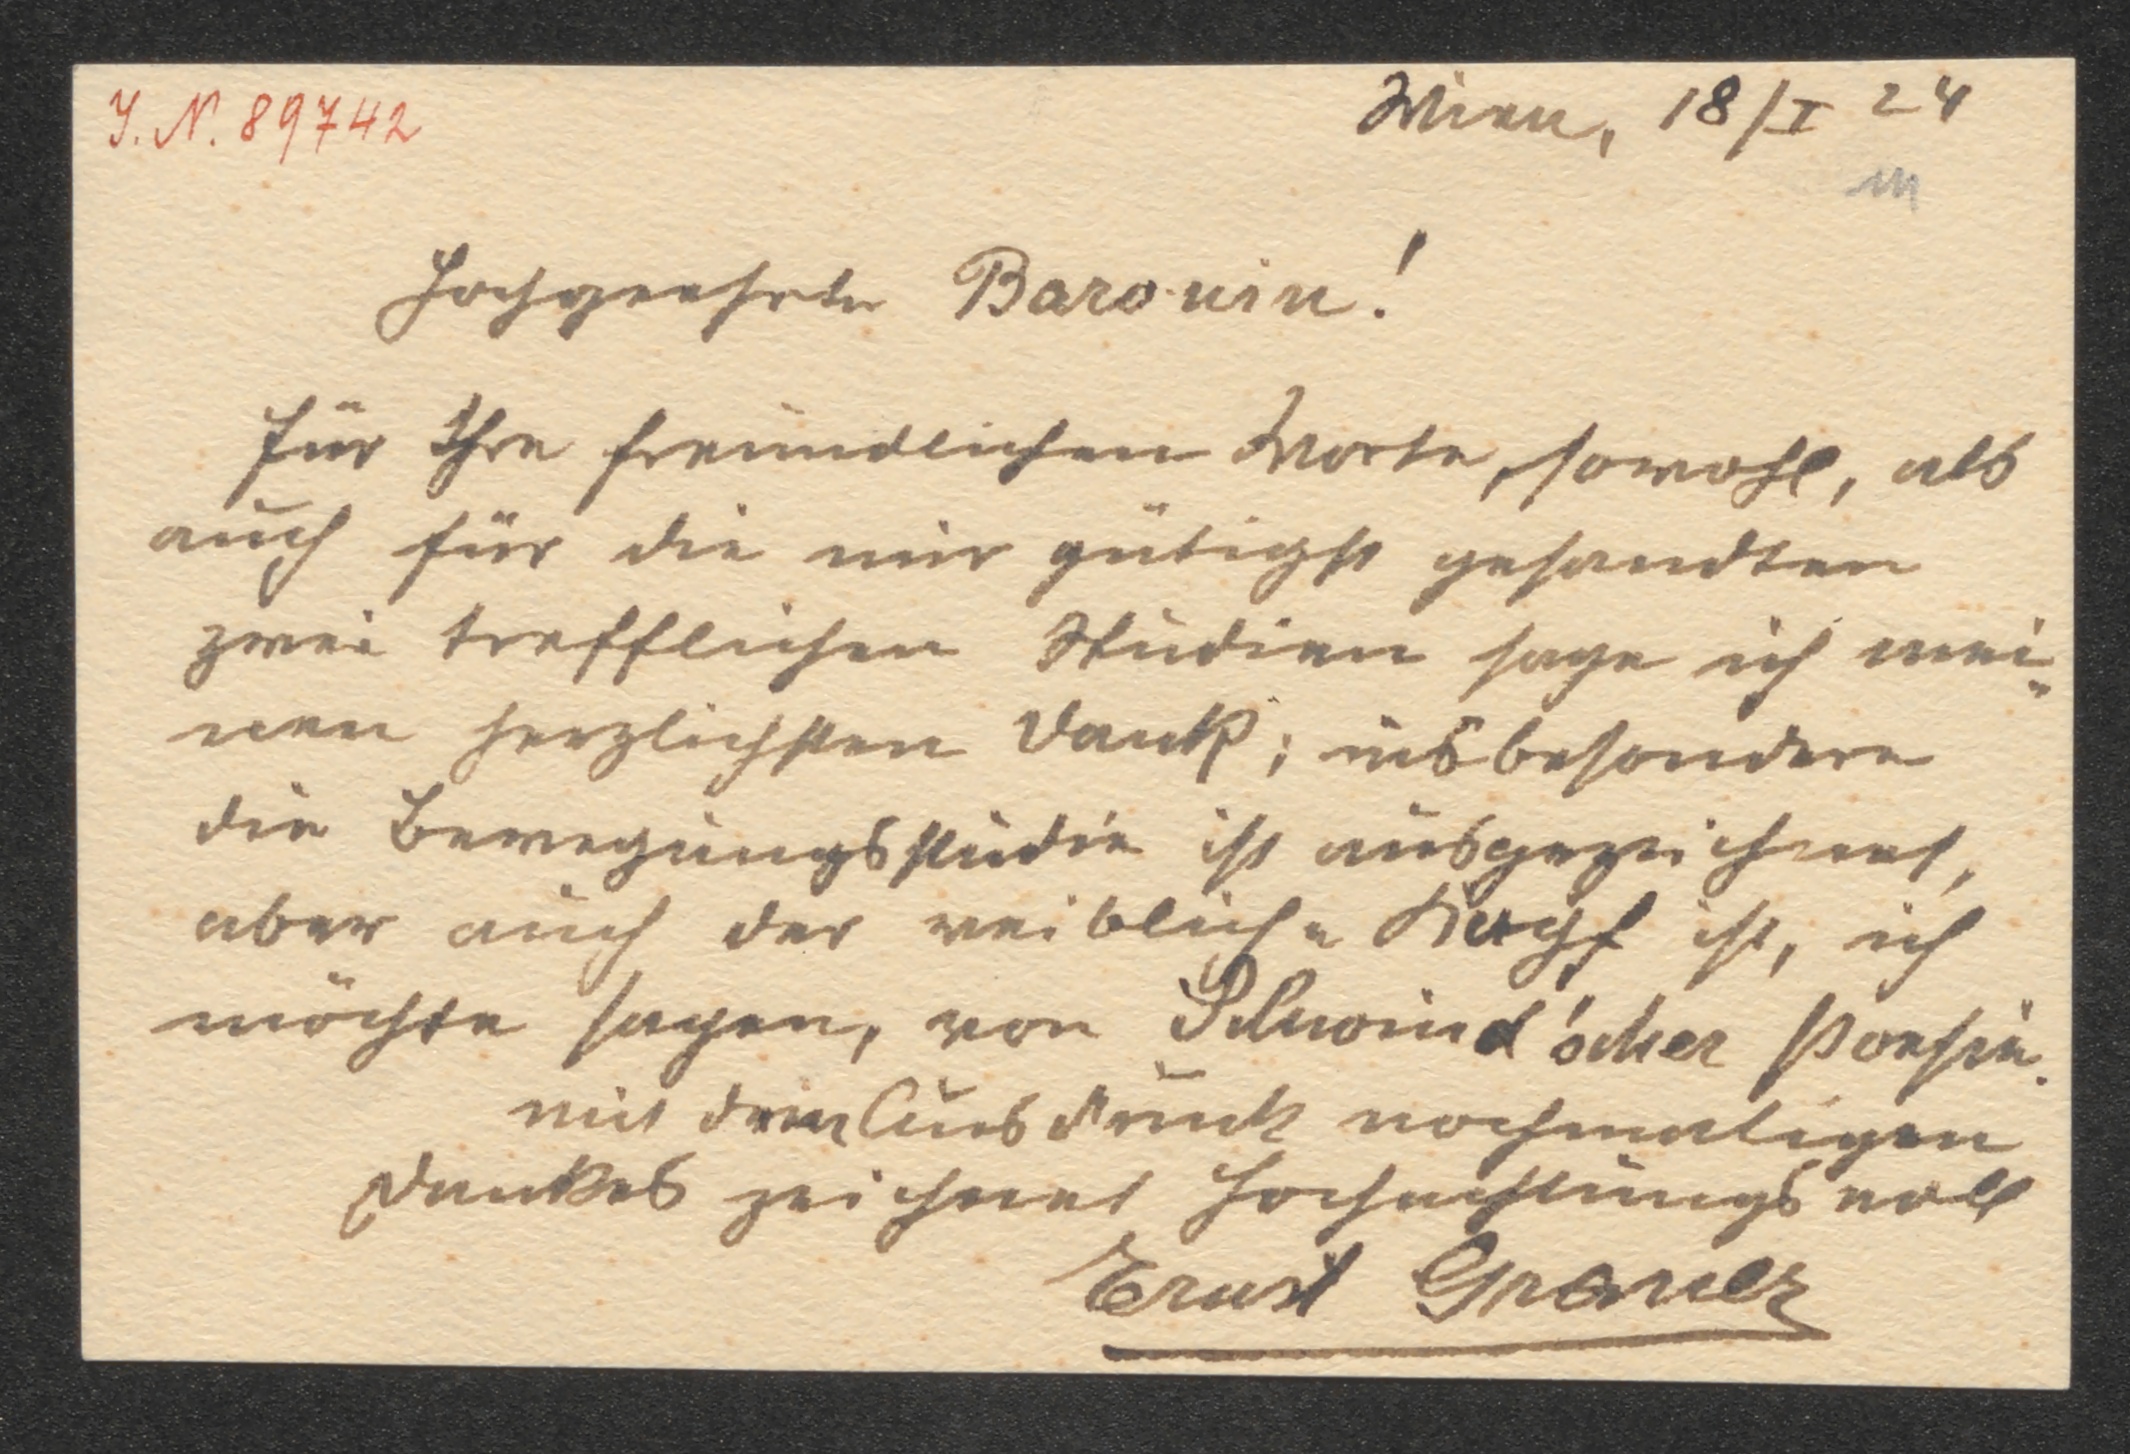 J. N. 89742
Wien, 18/I 24
Hochgeehrte Baronin!
Für Ihre freundlichen Worte, sowohl, als
auch für die mir gütigst gesandten
zwei trefflichen Studien sage ich mei-
nen herzlichsten Dank; insbesondere
die Bewegungsstudie ist ausgezeichnet,
aber auch der weibliche Kopf ist, ich
möchte sagen, von Schwind'scher Poesie.
Mit dem Ausdruck nochmaligen
Dankes zeichnet hochachtungsvoll
Ernst Graner